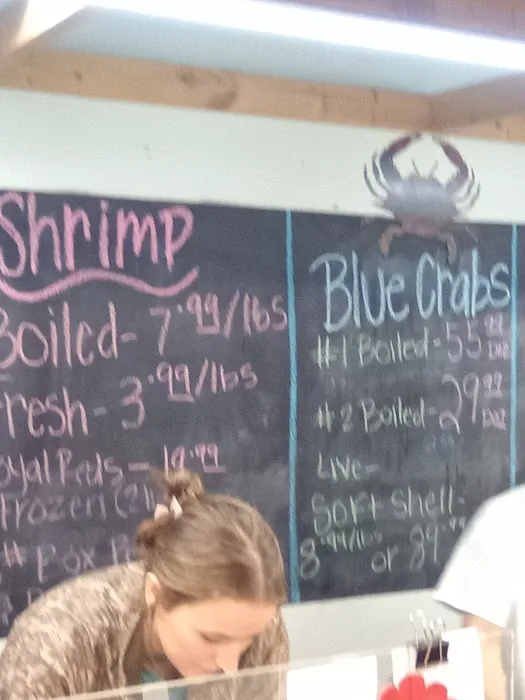 Shrimp
Boiled- 7.99/lbs
Fresh- 3.99/lbs
Royal Reds - 19.99
Frozen
Blue Crabs
#1 Boiled- 55.99 Doz
#2 Boiled- 29.99 Doz
Live-
Soft Shell-
8.99/lbs or 89.99